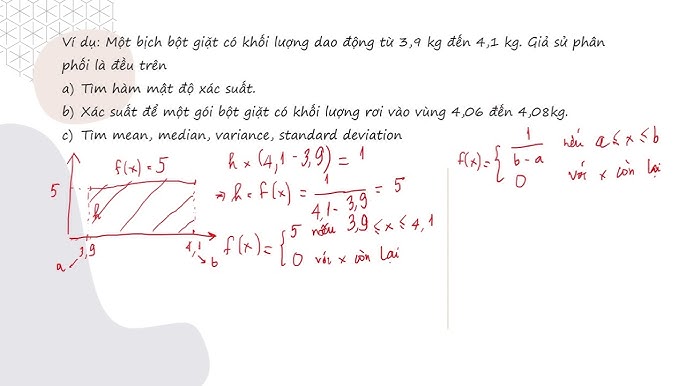 Ví dụ: Một bịch bột giặt có khối lượng dao động từ 3,9 kg đến 4,1 kg. Giả sử phân
phối là đều trên
a) Tìm hàm mật độ xác suất.
b) Xác suất để một gói bột giặt có khối lượng rơi vào vùng 4,06 đến 4,08kg.
c) Tìm mean, median, variance, standard deviation
f(x) = 5
5
h
3,9
4,1
a
b
h x (4,1 - 3,9) = 1
=> h = f(x) = 1 / (4,1 - 3,9) = 5
f(x) = { 5 nếu 3,9 ≤ x ≤ 4,1
0 với x còn lại
f(x) = { 1 / (b - a) nếu a ≤ x ≤ b
0 với x còn lại